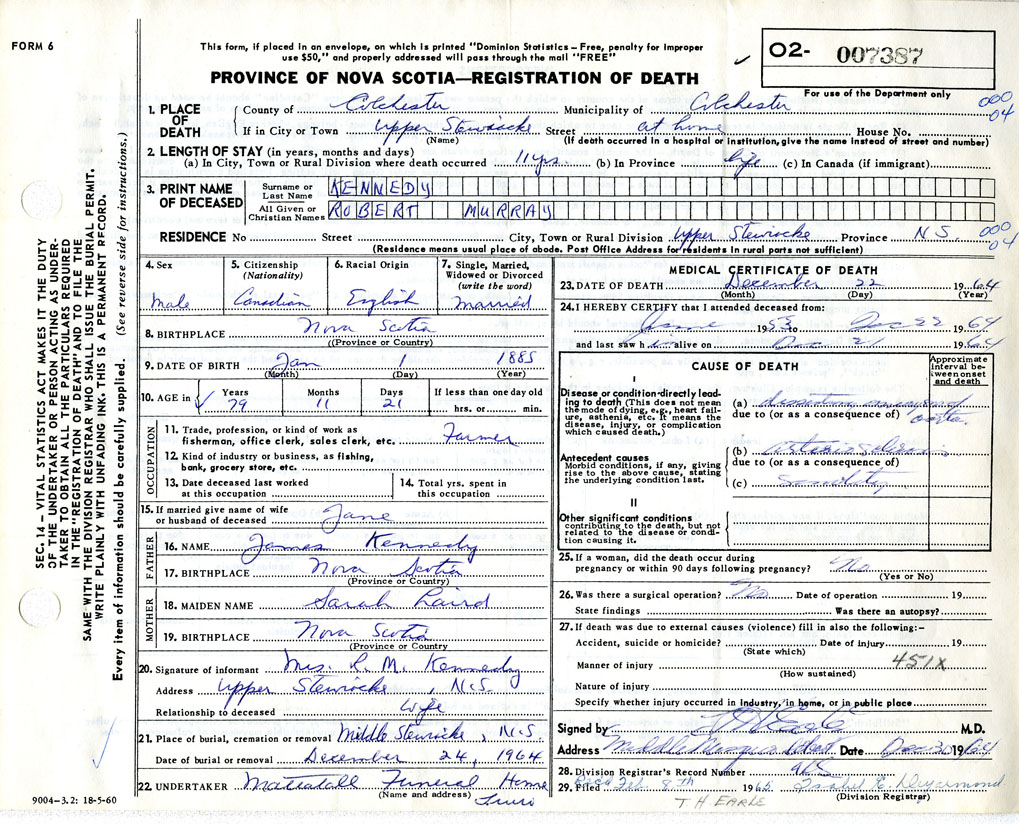 FORM 6
This form, if placed in an envelope, on which is printed "Dominion Statistics – Free, penalty for improper
use $50," and properly addressed will pass through the mail "FREE"
PROVINCE OF NOVA SCOTIA—REGISTRATION OF DEATH
O2- 007387
For use of the Department only
000
04
1. PLACE OF DEATH
County of Colchester Municipality of Colchester
If in City or Town Upper Stewiacke Street at home House No.
(Name) (If death occurred in a hospital or institution, give the name instead of street and number)
2. LENGTH OF STAY (in years, months and days)
(a) In City, Town or Rural Division where death occurred 11 yrs. (b) In Province life (c) In Canada (if immigrant)
3. PRINT NAME OF DECEASED
Surname or Last Name KENNEDY
All Given or Christian Names ROBERT MURRAY
RESIDENCE No Street City, Town or Rural Division Upper Stewiacke Province N.S.
000
04
(Residence means usual place of abode. Post Office Address for residents in rural parts not sufficient)
4. Sex
Male
5. Citizenship
(Nationality)
Canadian
6. Racial Origin
English
7. Single, Married,
Widowed or Divorced
(write the word)
Married
8. BIRTHPLACE Nova Scotia
(Province or Country)
9. DATE OF BIRTH Jan 1 1885
(Month) (Day) (Year)
10. AGE in Years Months Days If less than one day old
79 11 21 hrs. or min.
OCCUPATION
11. Trade, profession, or kind of work as
fisherman, office clerk, sales clerk, etc. Farmer
12. Kind of industry or business, as fishing,
bank, grocery store, etc.
13. Date deceased last worked
at this occupation
14. Total yrs. spent in
this occupation
15. If married give name of wife
or husband of deceased Jane
FATHER
16. NAME James Kennedy
17. BIRTHPLACE Nova Scotia
(Province or Country)
MOTHER
18. MAIDEN NAME Sarah Laird
19. BIRTHPLACE Nova Scotia
(Province or Country
20. Signature of informant Mrs. R. M. Kennedy
Address Upper Stewiacke, N.S.
Relationship to deceased Wife
21. Place of burial, cremation or removal Middle Stewiacke, N.S.
Date of burial or removal December 24, 1964
22. UNDERTAKER Mattatall Funeral Home
(Name and address) Truro
9004–3.2: 18-5-60
MEDICAL CERTIFICATE OF DEATH
23. DATE OF DEATH December 22 1964
(Month) (Day) (Year)
24. I HEREBY CERTIFY that I attended deceased from:
19 to Dec 22 1964
and last saw h alive on Dec 21 1964
CAUSE OF DEATH
Approximate
interval be-
tween onset
and death
I
Disease or condition directly lead-
ing to death (This does not mean
the mode of dying, e.g., heart fail-
ure, asthenia, etc. It means the
disease, injury, or complication
which caused death.)
(a) aneurysm of
due to (or as a consequence of) aorta
Antecedent causes
Morbid conditions, if any, giving
rise to the above cause, stating
the underlying condition last.
(b) arteriosclerosis
due to (or as a consequence of)
(c) senility
II
Other significant conditions
contributing to the death, but not
related to the disease or condi-
tion causing it.
25. If a woman, did the death occur during
pregnancy or within 90 days following pregnancy? No
(Yes or No)
26. Was there a surgical operation? No Date of operation 19
State findings Was there an autopsy?
27. If death was due to external causes (violence) fill in also the following:–
Accident, suicide or homicide? Date of injury 19
(State which)
451X
Manner of injury
(How sustained)
Nature of injury
Specify whether injury occurred in industry, in home, or in public place
Signed by M.D.
Address Middle Musquodoboit Date Dec 30 1964
28. Division Registrar's Record Number 965
29. Filed Rec'd Feb. 8th 1965 Isabel E. Deyarmond
(Division Registrar)
T H EARLE
SEC. 14 – VITAL STATISTICS ACT MAKES IT THE DUTY
OF THE UNDERTAKER OR PERSON ACTING AS UNDER-
TAKER TO OBTAIN ALL THE PARTICULARS REQUIRED
IN THE "REGISTRATION OF DEATH" AND TO FILE THE
SAME WITH THE DIVISION REGISTRAR WHO SHALL ISSUE THE BURIAL PERMIT.
WRITE PLAINLY WITH UNFADING INK. THIS IS A PERMANENT RECORD.
Every item of information should be carefully supplied. (See reverse side for instructions.)